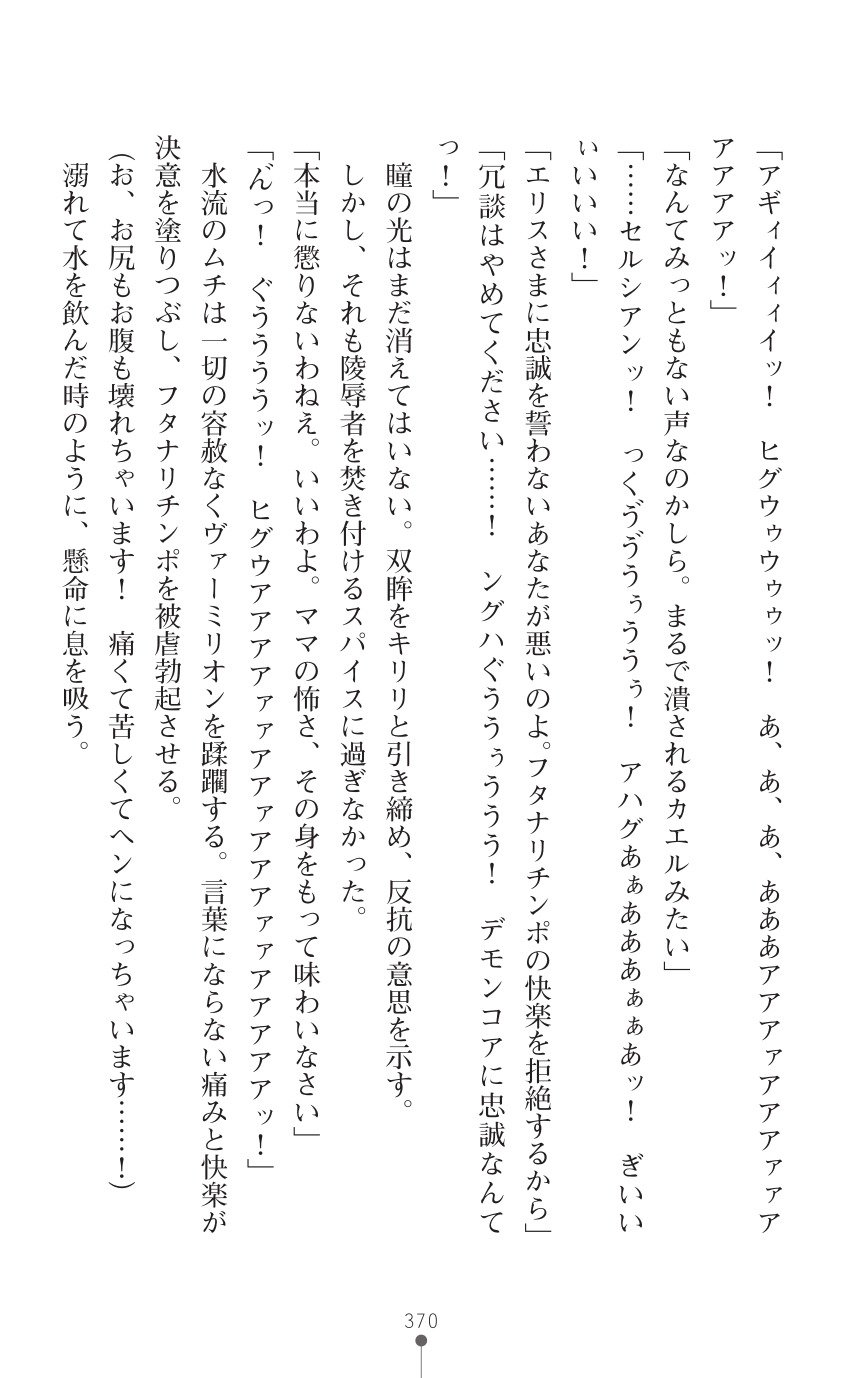 「アギィイィィイッ！　ヒグウゥウゥゥッ！　あ、あ、あ、あああアアアァアアアアァァア
アアアアッ！」
「なんてみっともない声なのかしら。まるで潰されるカエルみたい」
「……セルシアンッ！　っくゔゔうぅううぅ！　アハグあぁあああぁぁあッ！　ぎいい
ぃいいい！」
「エリスさまに忠誠を誓わないあなたが悪いのよ。フタナリチンポの快楽を拒絶するから」
「冗談はやめてください……！　ングハぐううぅううう！　デモンコアに忠誠なんて
っ！」
瞳の光はまだ消えてはいない。双眸をキリリと引き締め、反抗の意思を示す。
しかし、それも陵辱者を焚き付けるスパイスに過ぎなかった。
「本当に懲りないわねえ。いいわよ。ママの怖さ、その身をもって味わいなさい」
「ん゙っ！　ぐううううッ！　ヒグウアアアアァァアアァアアアアァァアアアアアッ！」
水流のムチは一切の容赦なくヴァーミリオンを蹂躙する。言葉にならない痛みと快楽が
決意を塗りつぶし、フタナリチンポを被虐勃起させる。
（お、お尻もお腹も壊れちゃいます！　痛くて苦しくてヘンになっちゃいます……！）
溺れて水を飲んだ時のように、懸命に息を吸う。
370